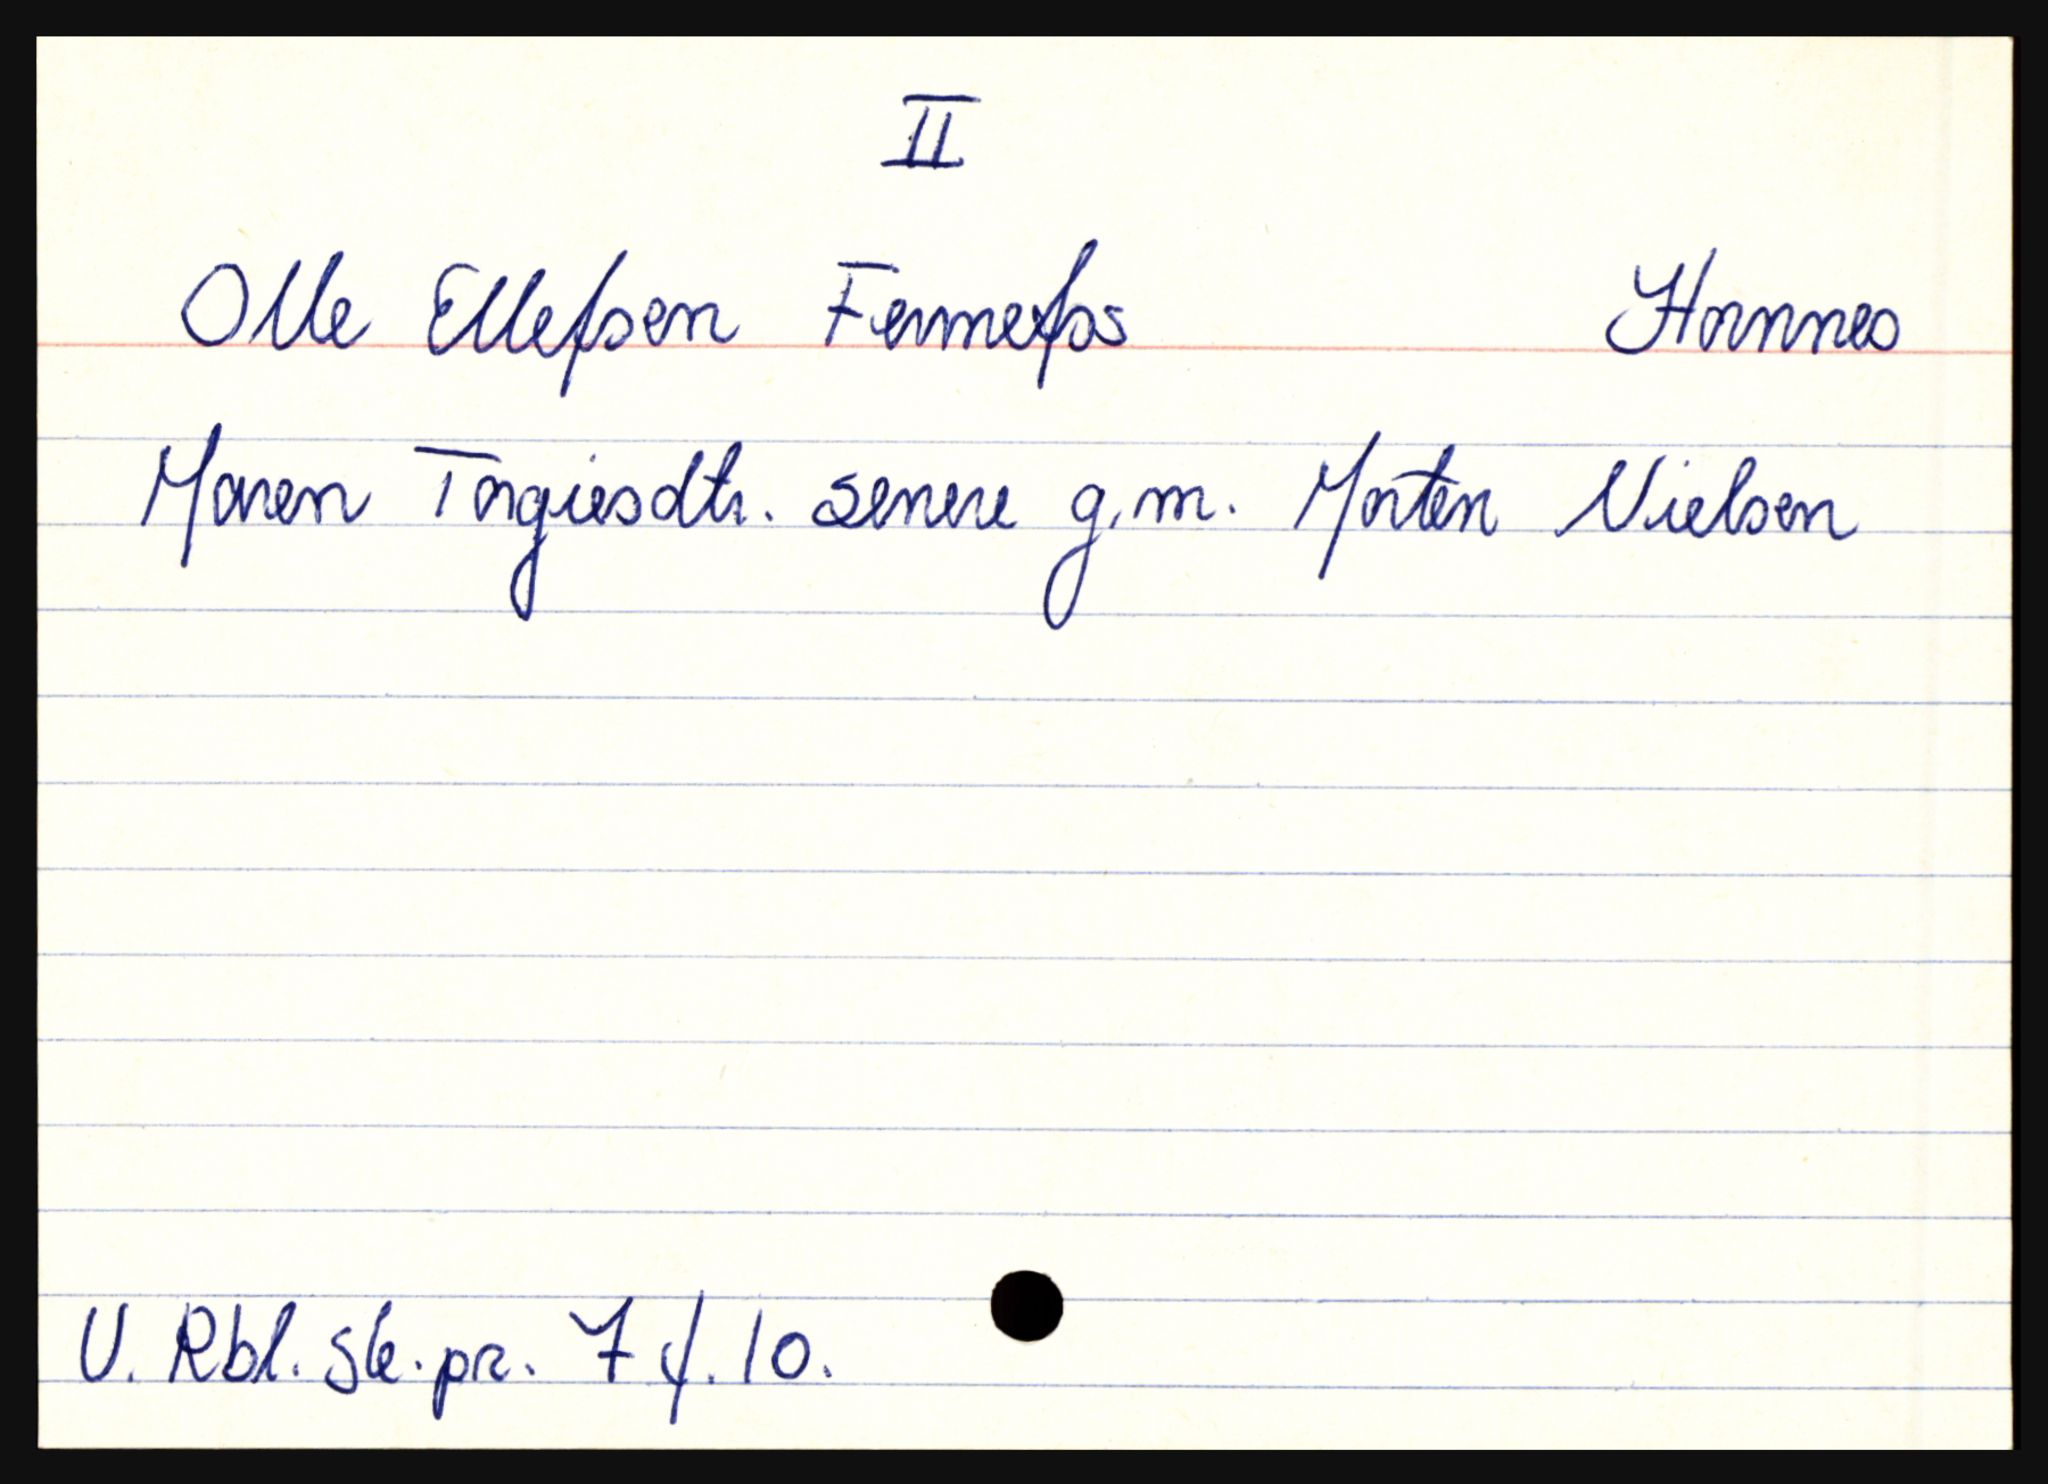 II
Olle Ellefsen Fennefos Hornnes
Maren Torgiesdtr. senere g.m. Morten Nielsen
V. Rbl. sk.pr. 7 f. 10.